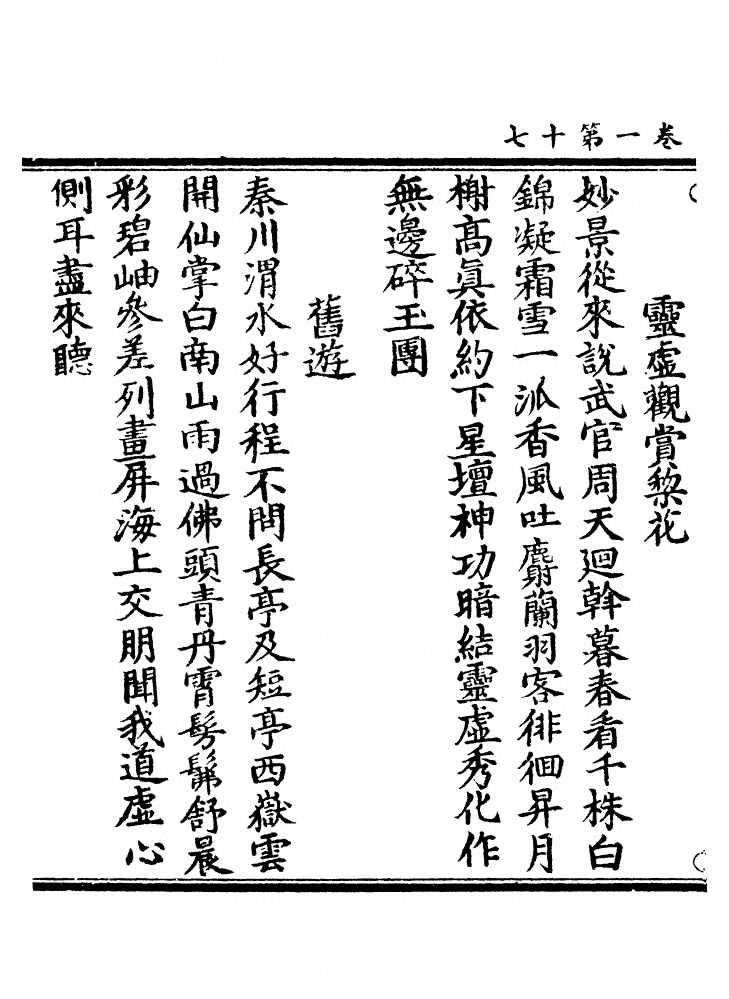 卷一第十七
靈虛觀賞梨花
妙景從來說武官周天迴斡暮春看千株白
錦凝霜雪一派香風吐麝蘭羽客徘徊昇月
榭高眞依約下星壇神功暗結靈虛秀化作
無邊碎玉團
舊遊
秦川渭水好行程不問長亭及短亭西嶽雲
開仙掌白南山雨過佛頭青丹霄髣髴舒晨
彩碧岫參差列畫屏海上交朋聞我道虛心
側耳盡來聽